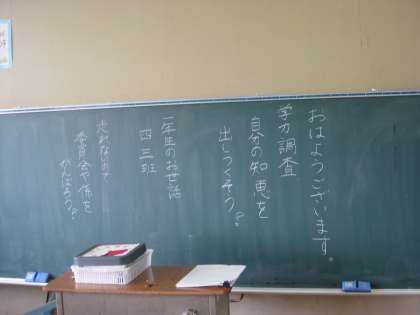 おはようございます。
学力調査
自分の知恵を
出しつくそう?
一年生のお世話
四三班
忘れないで
委員会や係を
がんばろう?